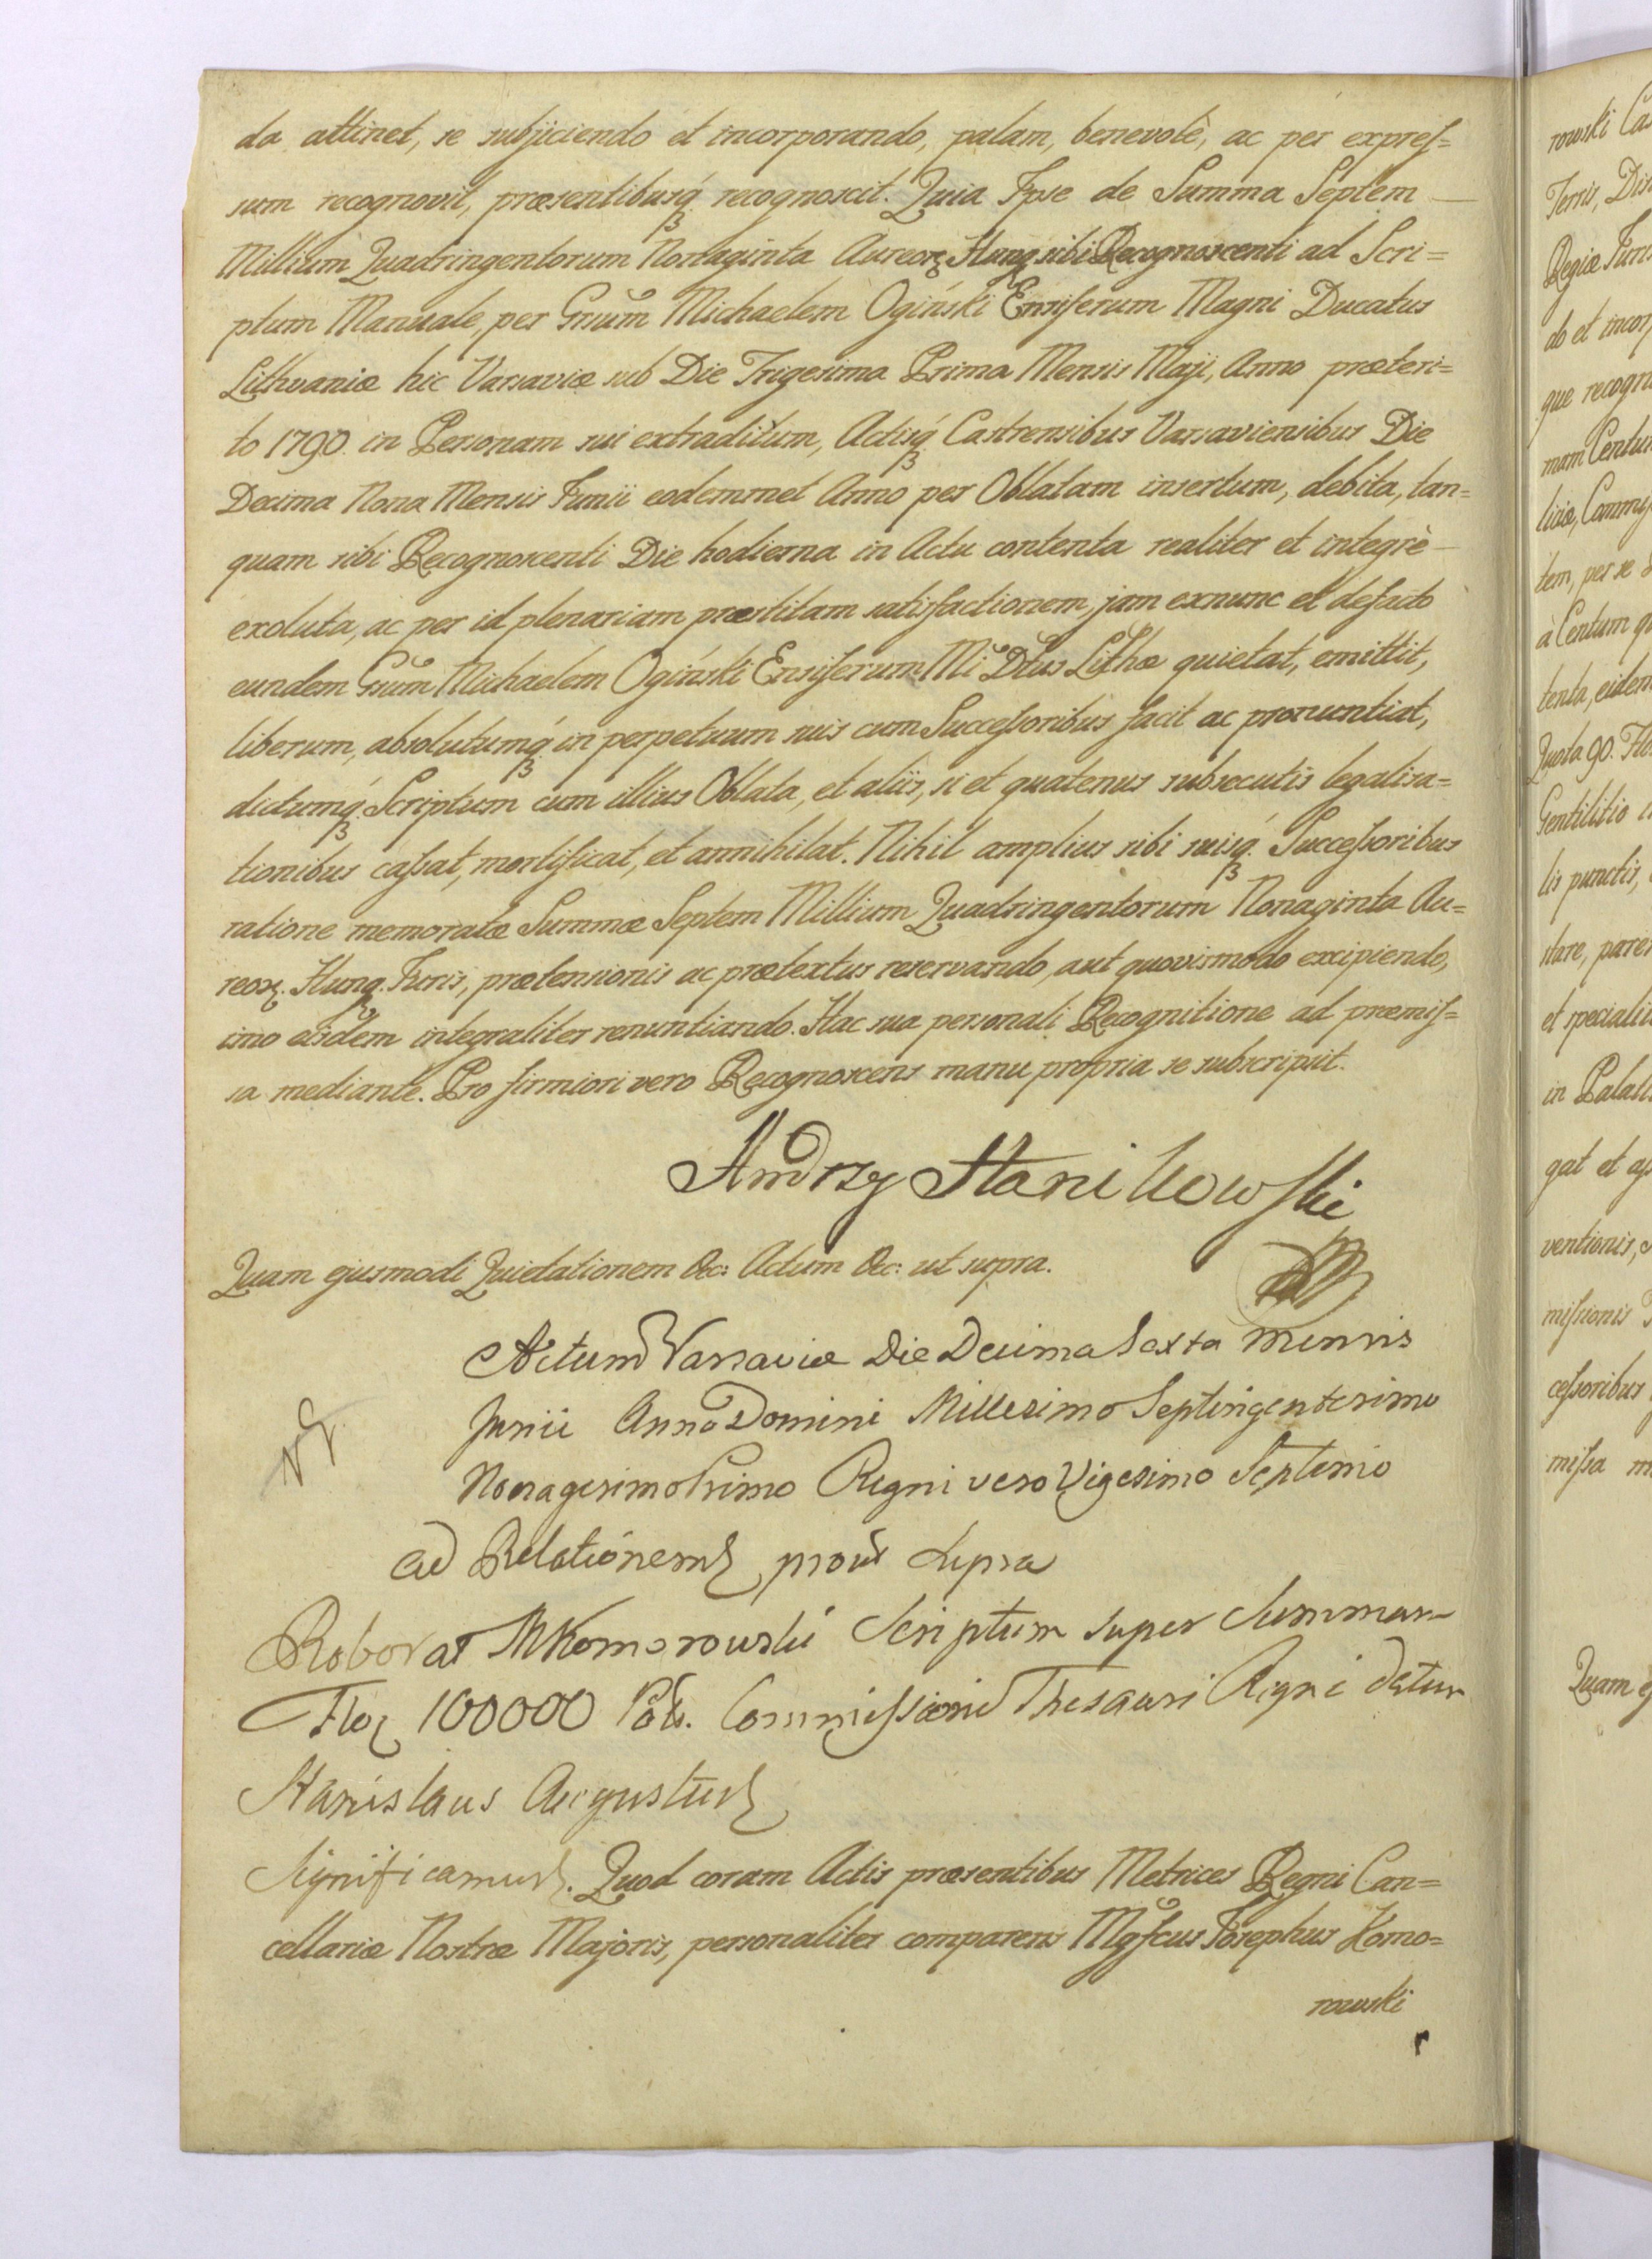 da attinet, se subjiciendo et incorporando, palam, benevolè, ac per expreſ=
sum recognovit, præsentibusq́ꝫ recognoscit. Quia Ipse de Summa Septem
Millium Quadringentorum Nonaginta Aureoꝝ Hungꝝ sibi Recognoscenti ad Scri=
ptum Manuale, per Gnūm Michaelem Ogiński Ensiferum Magni Ducatus
Lithvaniæ hic Varsaviæ sub Die Trigesima Prima Mensis Maji, Anno præteri=
to 1790. in Personam sui extraditum, Actisq́ꝫ Castrensibus Varsaviensibus Die
Decima Nona Mensis Junii eodemmet Anno per Oblatam insertum, debita, tan=
quam sibi Recognoscenti Die hodierna in Actu contenta realiter et integrè
exoluta, ac per id plenariam præstitam satisfactionem, jam exnunc et defacto
eundem Gnūm Michaelem Ogiński Ensiferum Mi Dtūs Lithæ quietat, emittit,
liberum, absolutumq́ꝫ in perpetuum suis cum Succeſsoribus facit ac pronuntiat,
dictumq́ꝫ Scriptum cum illius Oblata, et aliis, si et quatenus subsecutis legalisa=
tionibus caſsat, mortificat, et annihilat. Nihil amplius sibi suisq́ꝫ Succeſsoribus
ratione memoratæ Summæ Septem Millium Quadringentorum Nonaginta Au=
reoꝝ. Hungꝝ. Juris, prætensionis ac prætextus reservando, aut quovismodo excipiendo,
imo eisdem integraliter renuntiando. Hac sua personali Recognitione ad præmiſ=
sa mediante. Pro firmiori vero Recognoscens manu propria se subscripsit.
Andrzy Stanikowſki
Quam ejusmodi Quietationem &c: Actum &c: ut supra.
Actum Varsaviæ Die Decima Sexta Mensis
Junii Anno Domini Millesimo Septingentesimo
Nonagesimo Primo Regni vero Vigesimo Septimo
ad Relationem prout supra
Roborat M Komorowski Scriptum super Summam
Floꝝ 100000 Pol. Commiſsioni Thesauri Regni datum
Stanislaus Augustus
Significamus. Quod coram Actis præsentibus Metrices Regni Can=
cellariæ Nostræ Majoris, personaliter comparens Mgfcus Josephus Komo=
rowski
rowski
Terris,
Regiæ Juris
do et incor
que recogn
mam Centum
liciæ, Commiſ
tem, per se
à Centum
tenta, eidem
Quota 90.
Gentilitio
lis punctis,
et specialit
in Palati
gat et
ventionis,
miſsionis
ceſsoribus
miſsa
Quam